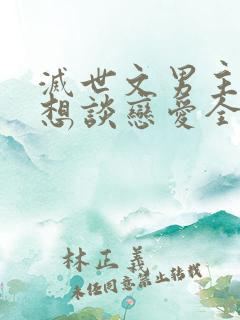 滅世文男主
想談戀愛全
林正義
未经同意禁止转载